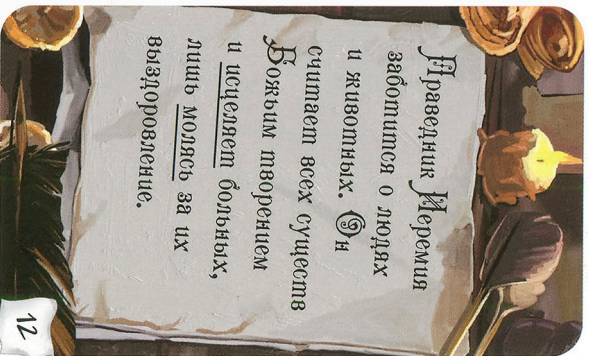 Праведник Иеремия
заботится о людях
и животных. Он
считает всех существ
Божьим творением
и исцеляет больных,
лишь молясь за их
выздоровление.
12